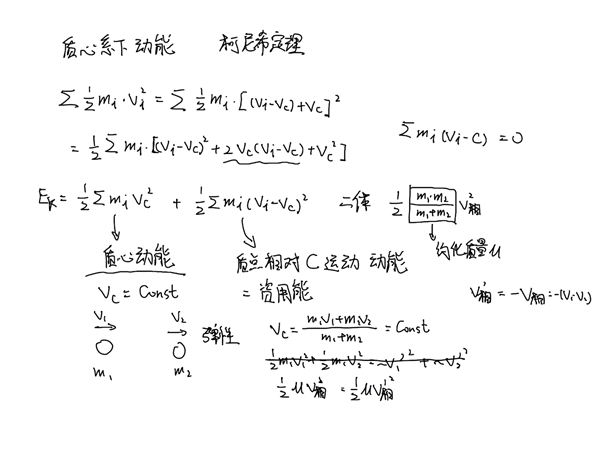 质心系下动能 柯尼希定理
∑ 1/2 mᵢ·Vᵢ² = ∑ 1/2 mᵢ·[(Vᵢ-Vc)+Vc]²
= 1/2 ∑ mᵢ·[(Vᵢ-Vc)² + 2Vc(Vᵢ-Vc) + Vc²]
∑ mᵢ(Vᵢ-C) = 0
Eₖ = 1/2 ∑ mᵢ Vc² + 1/2 ∑ mᵢ(Vᵢ-Vc)² 二体 1/2 m₁·m₂/(m₁+m₂) V相²
约化质量 μ
质心动能 质点相对 C 运动 动能
Vc = Const = 资用能
V'相 = -V相 = -(V₁-V₂)
V₁ V₂ 弹性 Vc = (m₁V₁+m₂V₂)/(m₁+m₂) = Const
m₁ m₂
1/2 m₁V₁² + 1/2 m₂V₂² = ~V₁'² + ~V₂'²
1/2 μV相² = 1/2 μV'相²